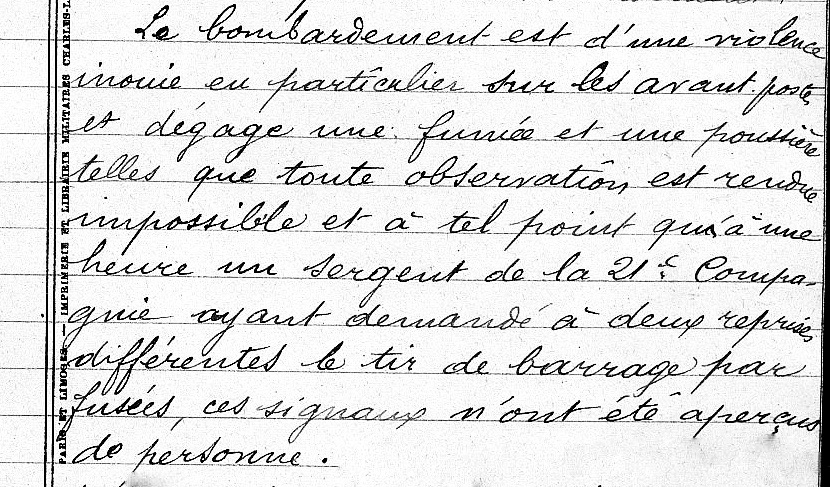 Le bombardement est d'une violence
inouie en particulier sur les avant-postes
et dégage une fumée et une poussière
telles que toute observation est rendue
impossible et à tel point qu'à une
heure un sergent de la 21e Compa-
gnie ayant demandé à deux reprises
différentes le tir de barrage par
fusées, ces signaux n'ont été aperçus
de personne.
PARIS ET LIMOGES. — IMPRIMERIE ET LIBRAIRIE MILITAIRES CHARLES-L